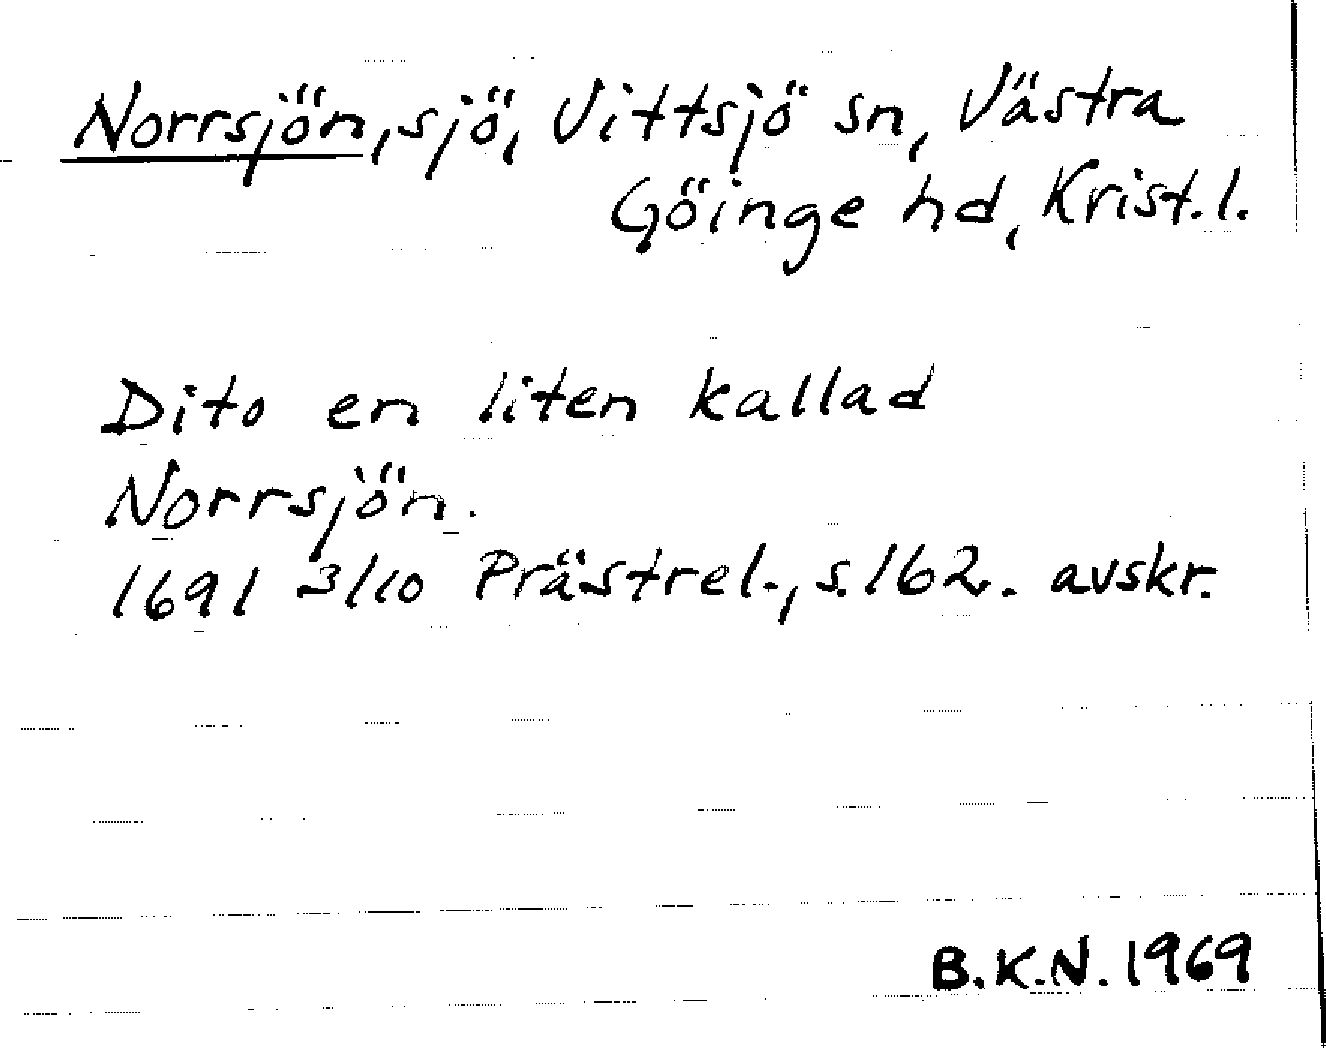 Norrsjön, sjö, Vittsjö sn, Västra
Göinge hd, Krist.l.
Dito en liten kallad
Norrsjön.
1691 3/10 Prästrel., s.162. avskr.
B.K.N. 1969